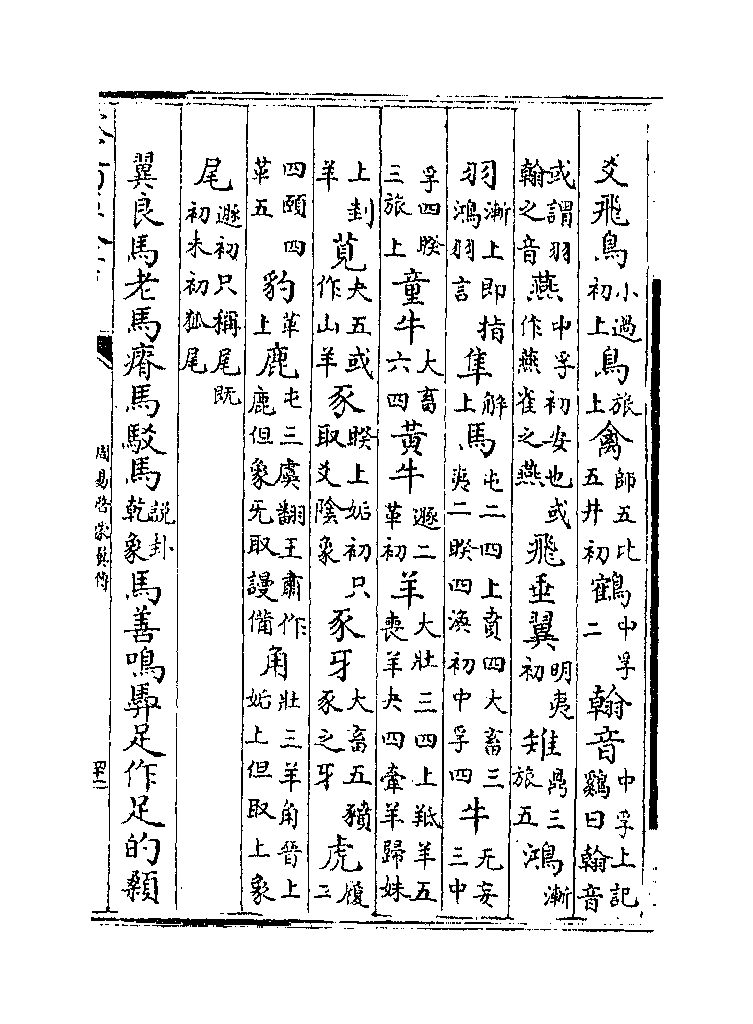 爻飛鳥小過初上鳥旅上禽師五比五井初鶴中孚二翰音中孚上記雞曰翰音
或謂羽翰之音燕中孚初安也或作燕雀之燕飛垂翼明夷初雉鼎三旅五鴻漸
羽漸上即指鴻羽言隼解上馬屯二四上賁四大畜三夷二睽四渙初中孚四牛无妄三中
孚四睽三旅上童牛大畜六四黃牛遯二革初羊大壯三四上羝羊五喪羊夬四牽羊歸妹
上刲羊莧夬五或作山羊豕睽上姤初只取爻陰象豕牙大畜五豶豕之牙虎履三
四頤四革五豹革上鹿屯三虞翻王肅作鹿但象旡取謾備角壯三羊角晉上姤上但取上象
尾遯初只稱尾既初未初狐尾
翼良馬老馬瘠馬駁馬說卦乾象馬善鳴馵足作足的顙
周易啓蒙翼傳